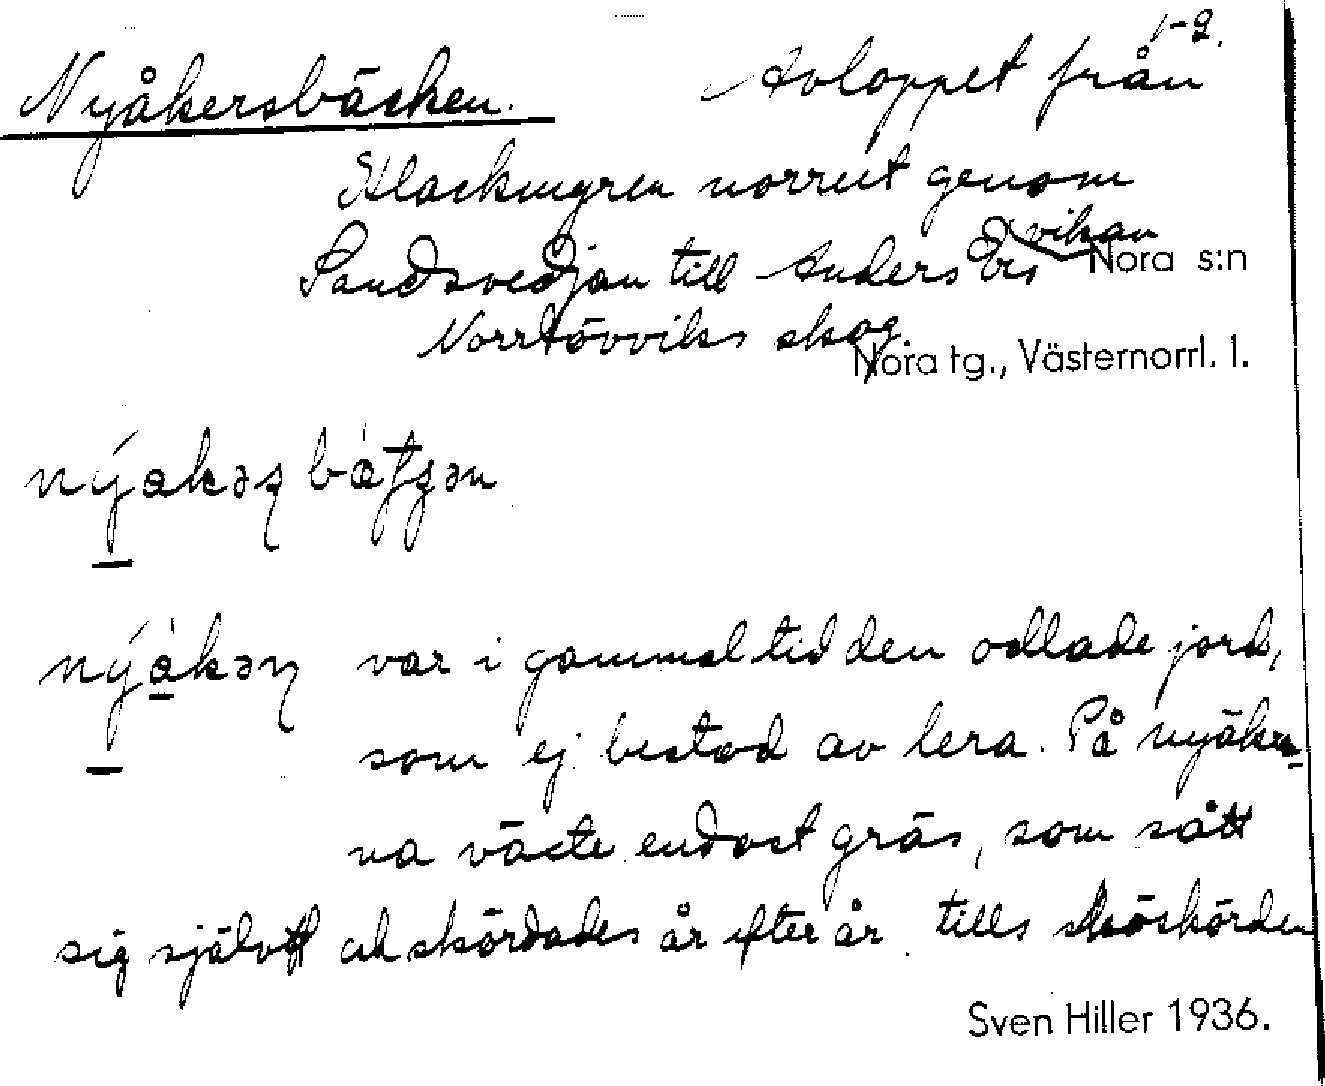 1-2.
Nyåkersbäcken. Avloppet från
Klackmyren norrut genom
Sandsvedjan till Anders Ers vikan
Nora s:n
Norrtövviks skog.
Nora tg., Västernorrl. l.
var i gammal tid den odlade jord,
som ej bestod av lera. På nyåkra-
na växte endast gräs, som sått
sig självt och skördades år efter år tills höskörden
Sven Hiller 1936.